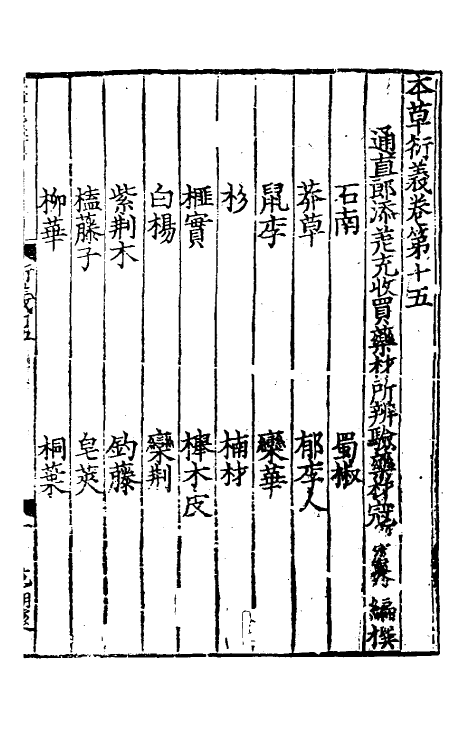 本草衍義卷第十五
通直郎添差充收買藥材所辨驗藥材寇宗奭編撰
石南　蜀椒
莽草　郁李人
鼠李　欒華
杉　楠材
榧實　櫸木皮
白楊　欒荆
紫荆木　釣藤
榼藤子　皂莢
柳華　桐葉